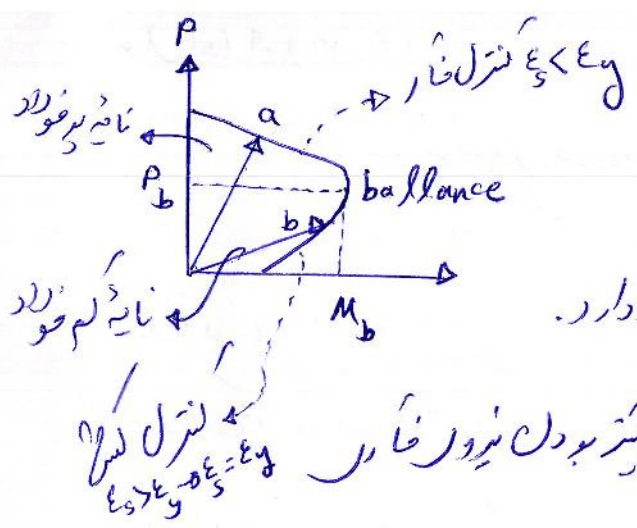 P
کنترل فشار εs < εy
a
ناحیه پرفولاد
Pb
ballance
b
ناحیه کم فولاد
Mb
دارد.
کنترل کشش
εs > εy → εs = εy
بودن نیروی فشاری